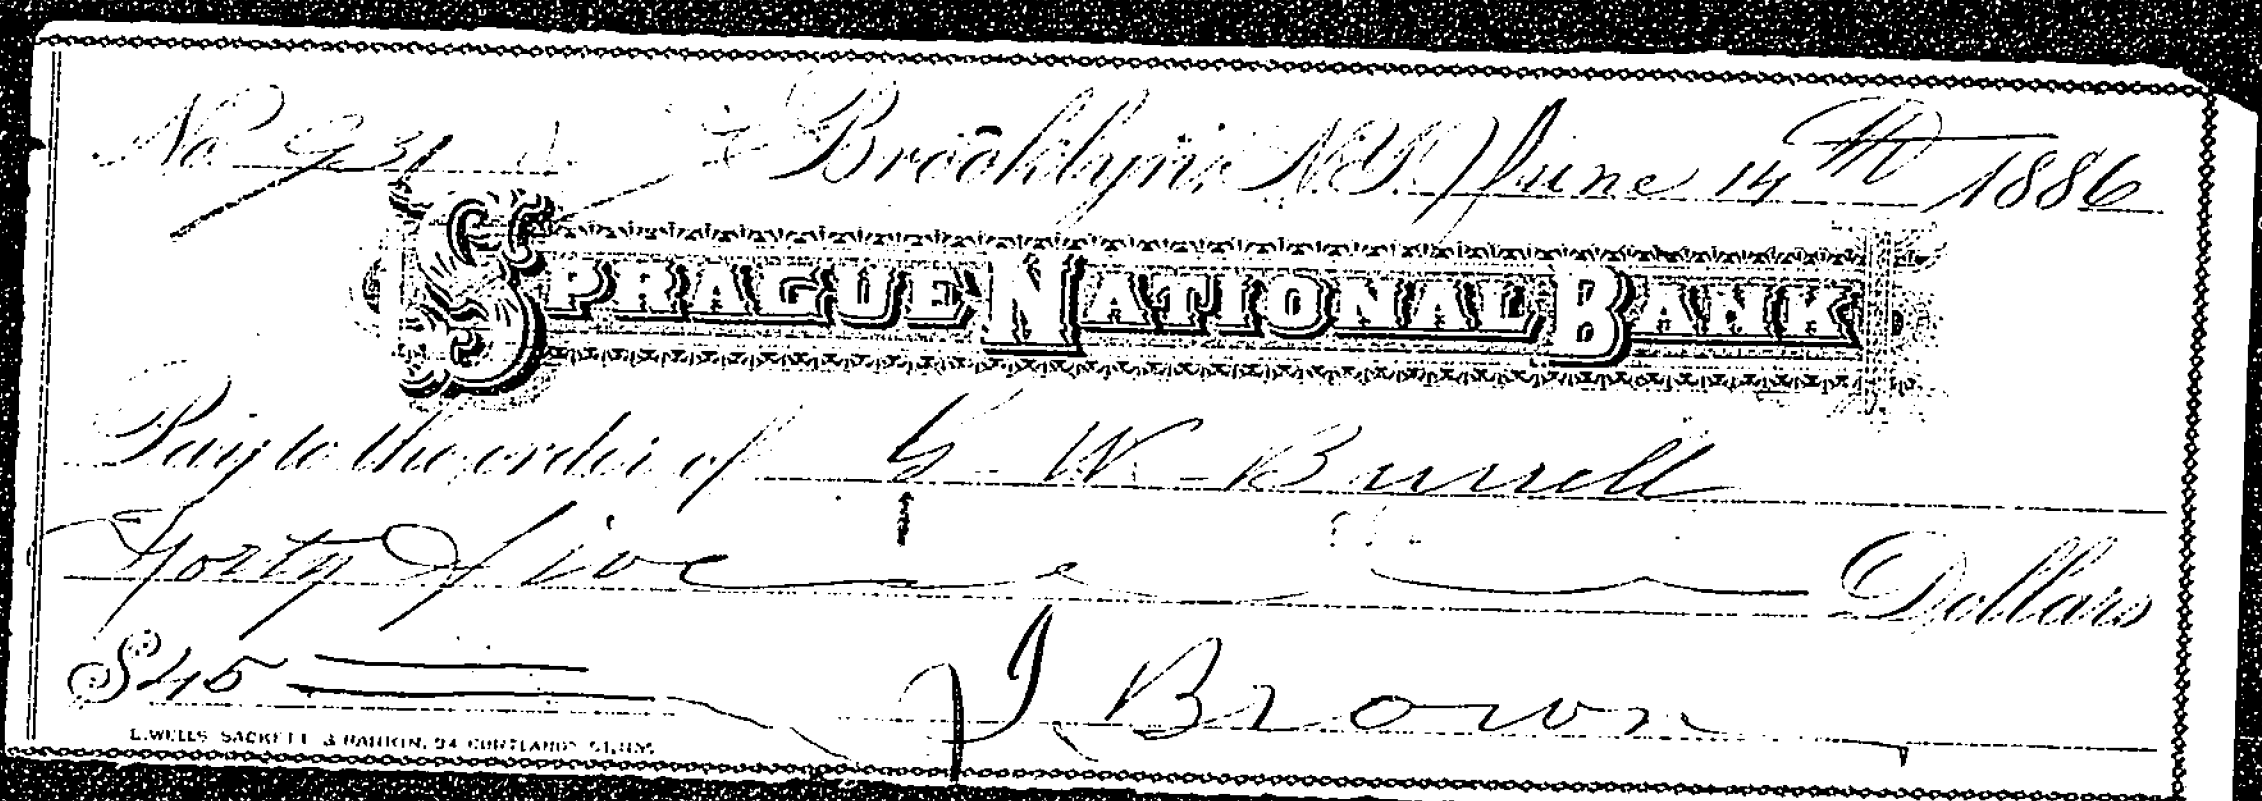 No 931 Brooklyn, N.Y. June 14th 1886
SPRAGUE NATIONAL BANK
Pay to the order of G. W. Burrell
Forty five Dollars
$45
J Brown
L. WELLS SACKETT & RANKIN, 54 CORTLANDT ST. N.Y.